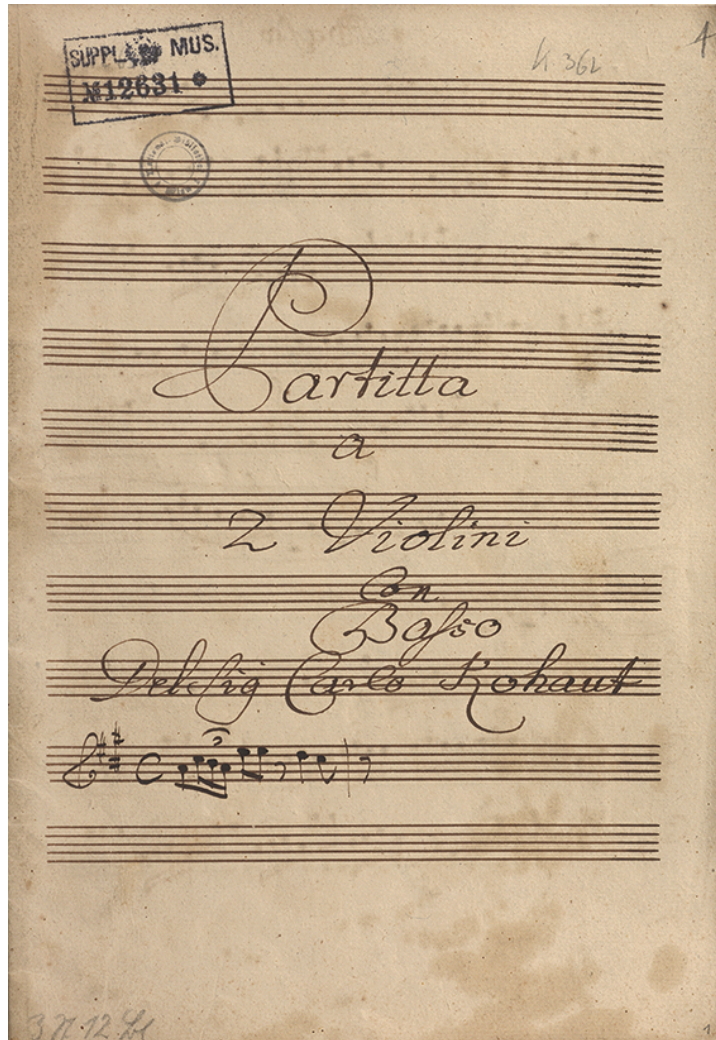 SUPPL. MUS.
K 362
4
№12631
Partitta
a
2 Violini
Con
Basso
Del Sig Carlo Kohaut
3
1